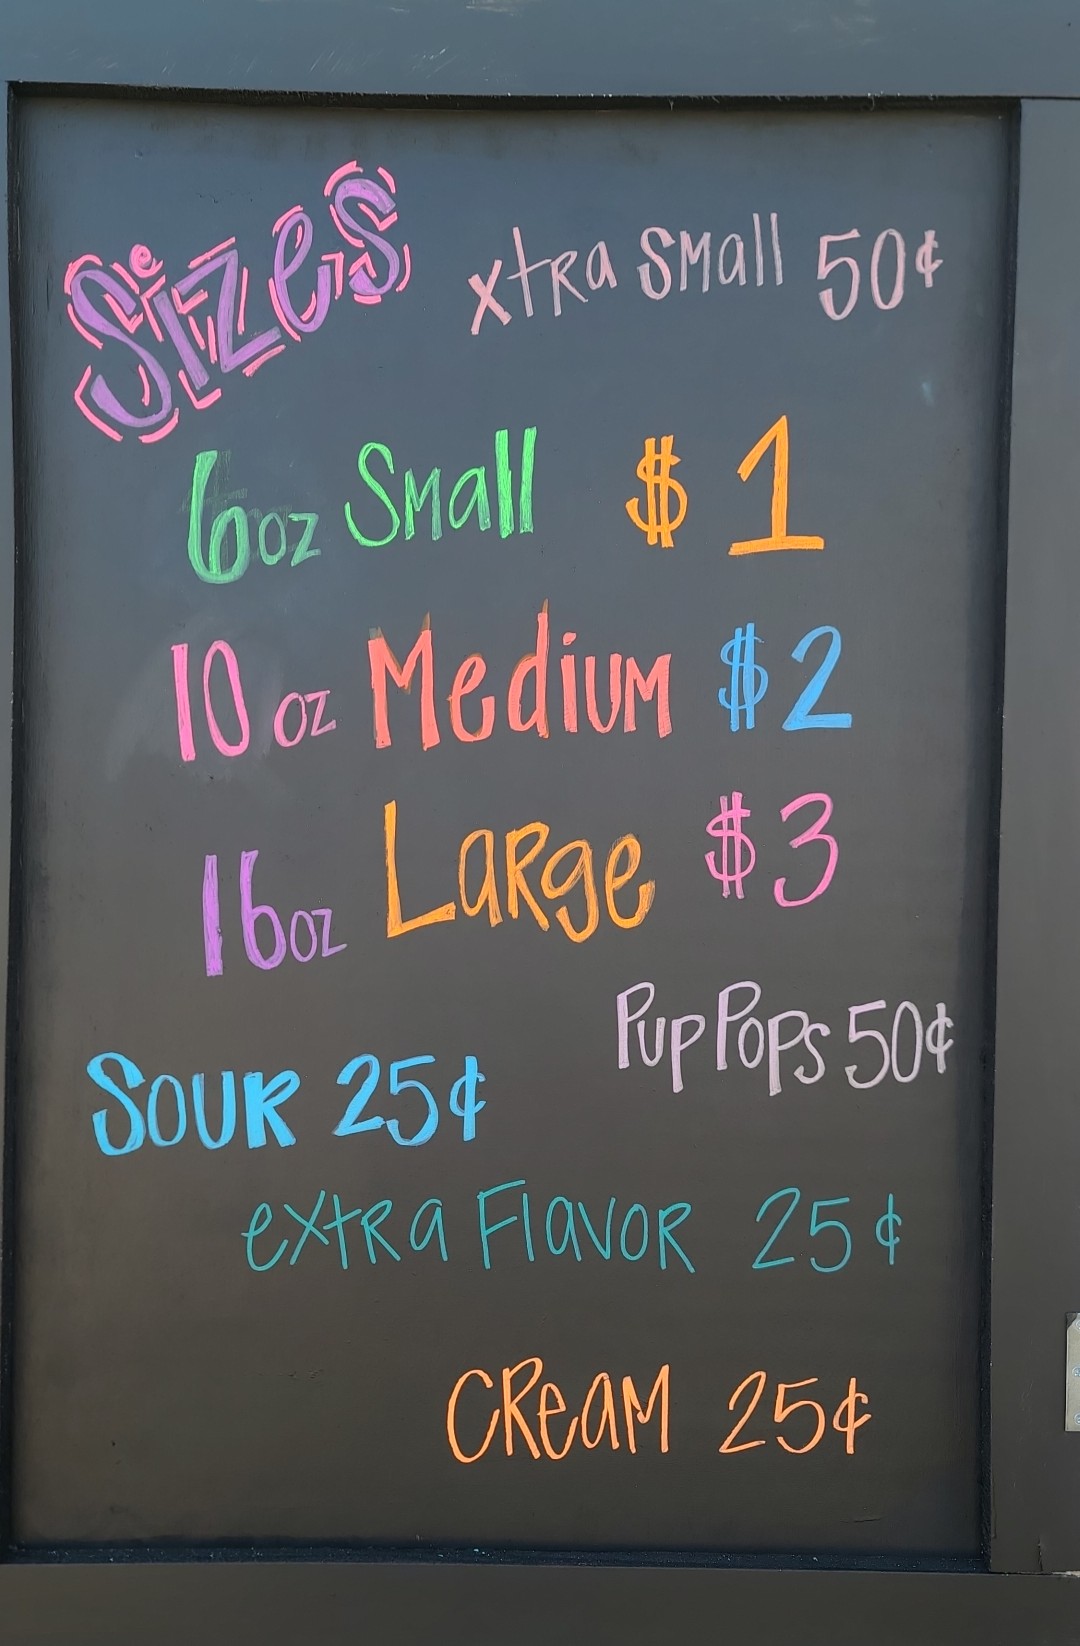 Sizes
xtra Small 50¢
6oz Small $1
10 oz Medium $2
16oz Large $3
Pup Pops 50¢
Sour 25¢
extra Flavor 25¢
Cream 25¢